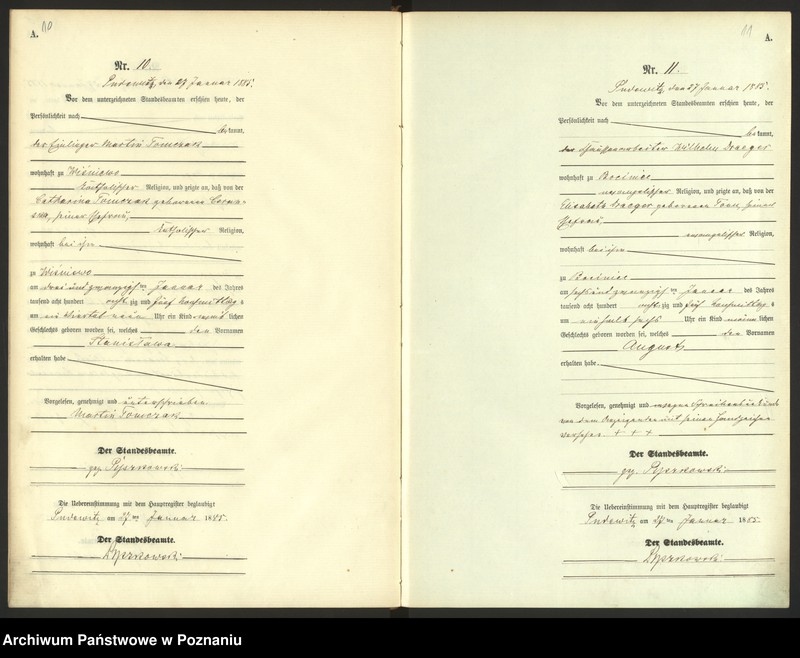 10
A.
Nr. 10.
Pudewitz, den 27 Januar 1885.
Vor dem unterzeichneten Standesbeamten erschien heute, der
Persönlichkeit nach
bekannt,
der Einlieger Martin Tomczak
wohnhaft zu Wiśniewo
katholischer Religion, und zeigte an, daß von der
Catharina Tomczak geborenen
seiner Ehefrau,
katholischer Religion,
wohnhaft bei ihm
zu Wiśniewo
am drei und zwanzigsten Januar des Jahres
tausend acht hundert acht zig und fünf Nachmittags
um ein Viertel neun Uhr ein Kind weiblichen
Geschlechts geboren worden sei, welches den Vornamen
Stanisława
erhalten habe
Vorgelesen, genehmigt und unterschrieben
Martin Tomczak
Der Standesbeamte.
gez.
Die Uebereinstimmung mit dem Hauptregister beglaubigt
Pudewitz am 27ten Januar 1885.
Der Standesbeamte.
11
A.
Nr. 11.
Pudewitz, den 27 Januar 1885.
Vor dem unterzeichneten Standesbeamten erschien heute, der
Persönlichkeit nach
bekannt,
der Wilhelm Draeger
wohnhaft zu
evangelischer Religion, und zeigte an, daß von der
Elisabeth Draeger geborenen seiner
Ehefrau,
evangelischer Religion,
wohnhaft bei ihm
zu
am sechs und zwanzigsten Januar des Jahres
tausend acht hundert acht zig und fünf Nachmittags
um ein halb sechs Uhr ein Kind männlichen
Geschlechts geboren worden sei, welches den Vornamen
August
erhalten habe
Vorgelesen, genehmigt und wegen Schreibensunkunde
von dem Anzeigenden mit seinem Handzeichen
versehen + + +
Der Standesbeamte.
gez.
Die Uebereinstimmung mit dem Hauptregister beglaubigt
Pudewitz am 27ten Januar 1885.
Der Standesbeamte.
Archiwum Państwowe w Poznaniu